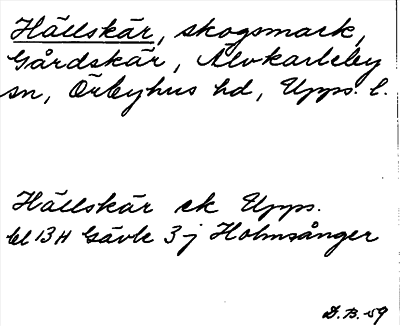 Hällskär, skogsmark,
Gårdskär, Älvkarleby
sn, Örbyhus hd, Upps. l.
Hällskär ek Upps.
bl 13H Gävle 3-j Holmsånger
D.B.-59